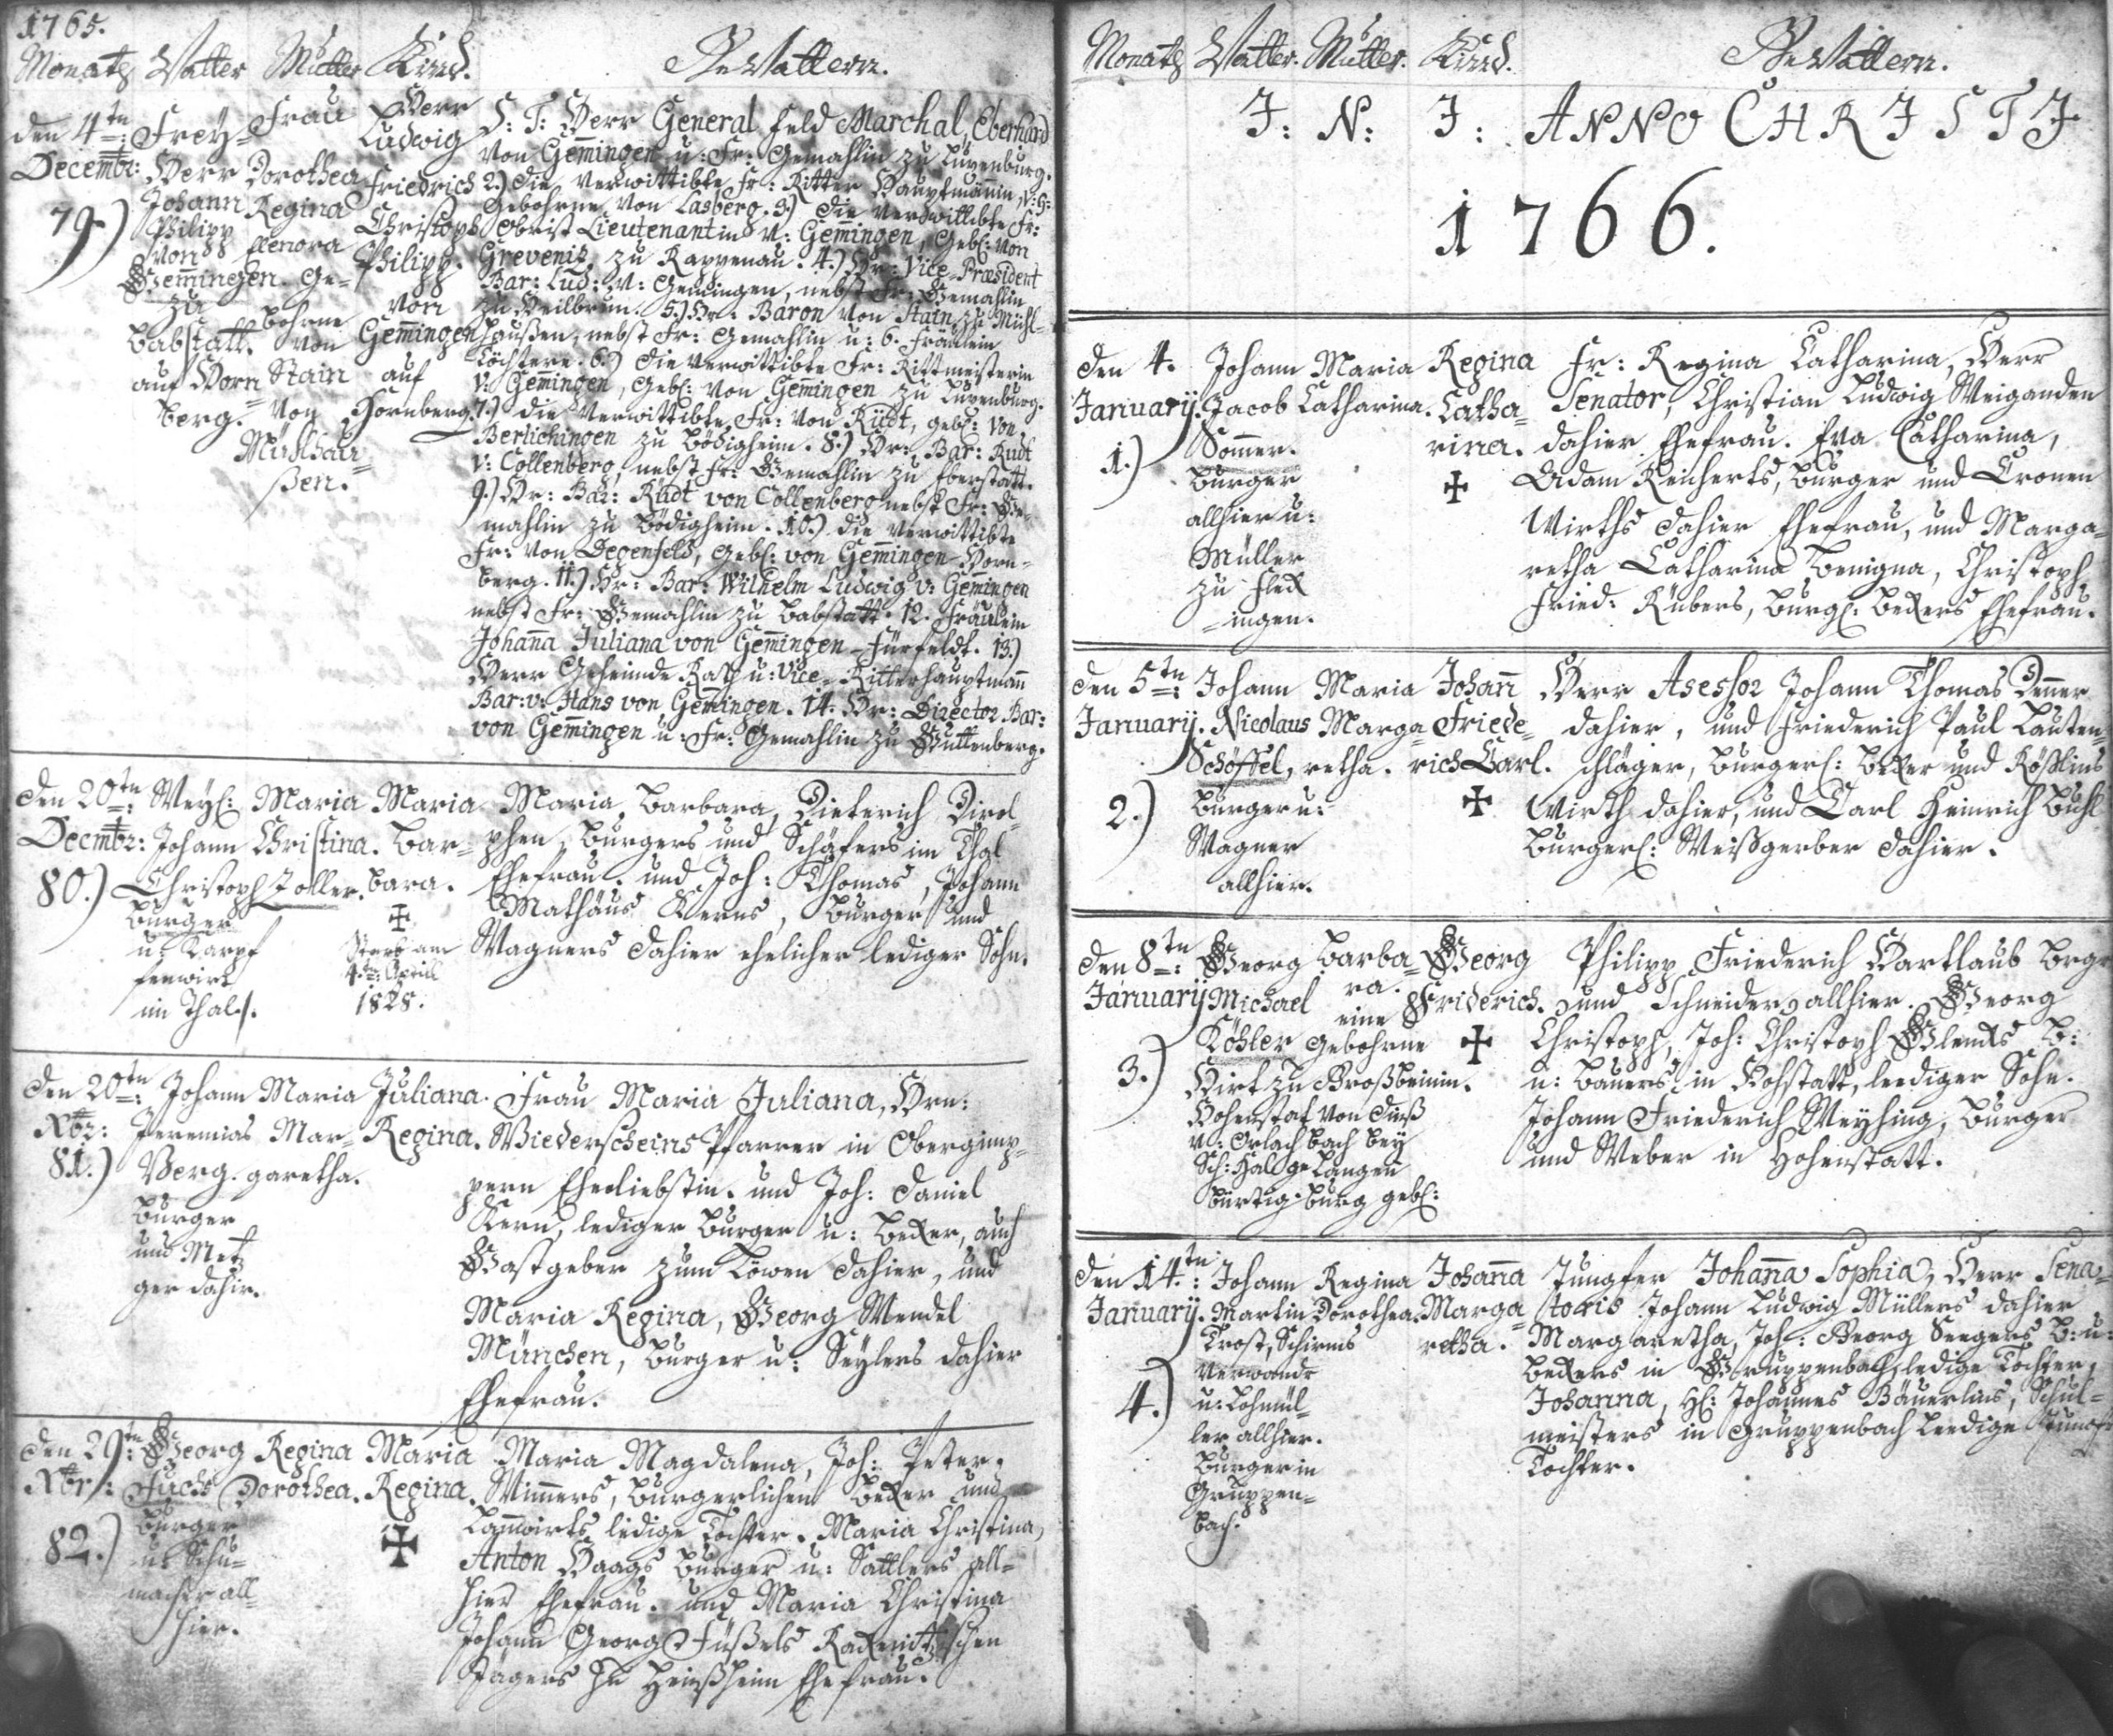 1765.
Monath Vatter Mutter Kind. Gevattern.
den 4tn: Decembr:
79.)
Frey-
Herr
Johann
Philipp
von
Gem̄ingen
zu
Babstatt.
auf Horn
berg.
Frau
Dorothea
Regina
Elenora
Ge-
bohrne
von
Stain
von
Mühlhau-
ßen.
Herr
Ludwig
Friedrich
Christoph
Philipp.
von
Gem̄ingen
auf
Hornberg.
S: T: Herr General Feld Marchal, Eberhard
von Gem̄ingen u: Fr: Gemahlin zu Lüxenburg.
2.) die verwittibte Fr: Ritter Hauptmännin, v: G:
Gebohrne von Lasberg. 3.) die verwittibte Fr:
Obrist Lieutenantin v: Gem̄ingen, Geb: von
Greveniz, zu Rappenau. 4.) Hr: Vice-Præsident
Bar: Lud: v: Gem̄ingen, nebst Fr: Gemahlin
zu Heilbrun. 5.) Hr: Baron von Stain, zu Mühl-
haußen, nebst Fr: Gemahlin u: 6. Fräulein
Töchtere. 6.) die verwittibte Fr: Rittmeisterin
v: Gem̄ingen, Geb: von Gem̄ingen zu Luxenburg.
7.) die verwittibte Fr: von Rüdt, geb: von
Berlichingen zu Bödigheim. 8.) Hr: Bar: Rüdt
v: Collenberg, nebst Fr: Gemahlin zu Eberstatt.
9.) Hr: Bar: Rüdt von Collenberg nebst Fr: Ge-
mahlin zu Bödigheim. 10.) die verwittibte
Fr: von Degenfeld, Geb: von Gem̄ingen Horn-
berg. 11.) Hr: Bar: Wilhelm Ludwig v: Gem̄ingen
nebst Fr: Gemahlin zu Babstatt. 12. Fräulein
Johan̄a Juliana von Gem̄ingen-Fürfeldt. 13.)
Herr Geheimde Rath u: Vice-Ritterhauptman̄
Bar: v: Hans von Gem̄ingen. 14. Hr: Director Bar:
von Gem̄ingen u: Fr: Gemahlin zu Guttenberg.
den 20tn: Decmbr:
80.)
Weyl:
Johann
Christoph Zoller.
Burger
u: Karpf
fenwirt
im Thal.
Maria
Christina.
Maria
Bar-
bara.
Starb am
4ten April
1828.
Maria Barbara, Dieterich
Burgers und Schäfers im Thal
Ehefrau. und Joh: Thomas, Johann
Mathäus Kerns, Burger und
Wagners dahier ehelicher lediger Sohn.
den 20tn: Xbr:
81.)
Johann
Jeremias
Berg.
Burger
und Metz
ger dahier.
Maria
Mar-
garetha.
Juliana.
Regina.
Frau Maria Juliana, Hrn:
Wiederscheins Pfarrer in Obergimp-
pern Eheliebstin. und Joh: Daniel
Kern, lediger Burger u: Becker, auch
Gastgeber zum Löwen dahier, und
Maria Regina, Georg Wendel
München, Burger u: Seylers dahier
Ehefrau.
den 29tn: Xbr:
82.)
Georg
Fuchs
Burger
u: Schu-
macher all-
hier.
Regina
Dorothea.
Maria
Regina.
Maria Magdalena, Joh: Peter
Wim̄ers, Burgerlichen Becker und
ledige Tochter. Maria Christina,
Anton Haags Burger u: Sattlers all-
hier Ehefrau. und Maria Christina
Johann Georg Füßels Racknitzischen
Jägers zu Heinßheim Ehefrau.
Monath Vatter. Mutter. Kind. Gevattern.
J: N: J: ANNO CHRJSTJ
1766.
den 4. January.
1.)
Johann
Jacob
Som̄er.
Burger
allhier u:
Müller
zu Flex
-ingen.
Maria
Catharina.
Regina
Catha-
rina.
Fr: Regina Catharina, Herr
Senator, Christian Ludwig Weiganden
dahier Ehefrau. Eva Catharina,
Adam Reicherts, Burger und Cronen
Wirths dahier Ehefrau, und Marga-
retha Catharina Benigna, Christoph
Fried: Kübers, Burgl: Beckers Ehefrau.
den 5tn: January.
2.)
Johann
Nicolaus
Schöffel,
Burger u:
Wagner
allhier.
Maria
Marga-
retha.
Johan̄
Friede-
rich Carl.
Herr Asessor Johann Thomas
dahier, und Friederich Paul Lauten-
schläger, Burgerl: Becker und Rößlins
Wirth dahier, und Carl Heinrich Buhl
Burgerl: Weißgerber dahier.
den 8tn: January
3.)
Georg
Michael
Köhler
Hirt zu
Hohenstat
v: Orlach
Sch: Hal
bürtig.
Barba-
ra.
eine
gebohrne
Großbeinin.
von
bach bey
Langen
burg geb:
Georg
Friderich.
Philipp Friederich Hartlaub Brgr
und Schneider allhier. Georg
Christoph, Joh: Christoph Glencks B:
u: Bauers in Hohstatt, lediger Sohn.
Johann Friederich Weyhing, Burger
und Weber in Hohenstatt.
den 14.tn: January.
4.)
Johann
Martin
Trost, Schirms
Verwandr
u: Lohmül-
ler allhier.
Burger in
Gruppen-
bach.
Regina
Dorothea.
Johan̄a
Marga-
retha.
Jungfer Johan̄a Sophia, Herr Sena-
toris Johann Ludwig Müllers dahier
Margaretha, Joh: Georg Seegers B: u:
Beckers in Gruppenbach, ledige Tochter,
Johanna, H: Johannes Bäuerlins, Schul-
meisters in Gruppenbach leedige
Tochter.